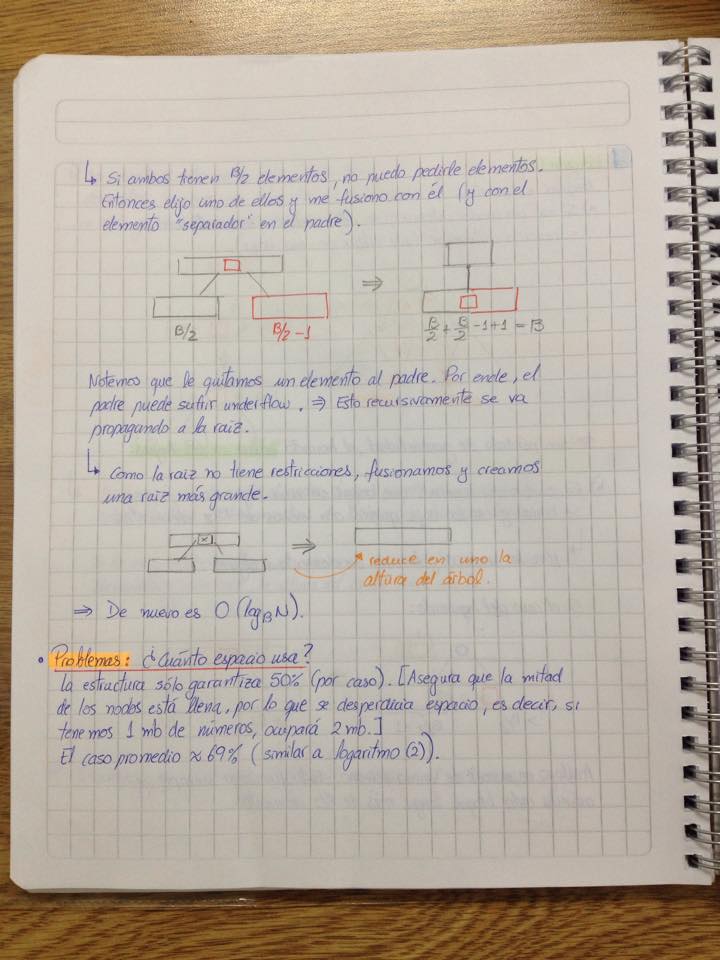 ↳ Si ambos tienen B/2 elementos, no puedo pedirle elementos.
Entonces elijo uno de ellos y me fusiono con él (y con el
elemento "separador" en el padre).
⇒
B/2 B/2 -1 B/2 + B/2 -1+1 = B
Notemos que le quitamos un elemento al padre. Por ende, el
padre puede sufrir underflow. ⇒ Esto recursivamente se va
propagando a la raiz.
↳ Como la raiz no tiene restricciones, fusionamos y creamos
una raiz más grande.
x ⇒
reduce en uno la
altura del árbol.
⇒ De nuevo es O(log_B N).
• Problemas: ¿Cuánto espacio usa?
La estructura sólo garantiza 50% (por caso). [Asegura que la mitad
de los nodos está llena, por lo que se desperdicia espacio, es decir, si
tenemos 1 mb de números, ocupará 2 mb.]
El caso promedio ≈ 69% (similar a logaritmo (2)).